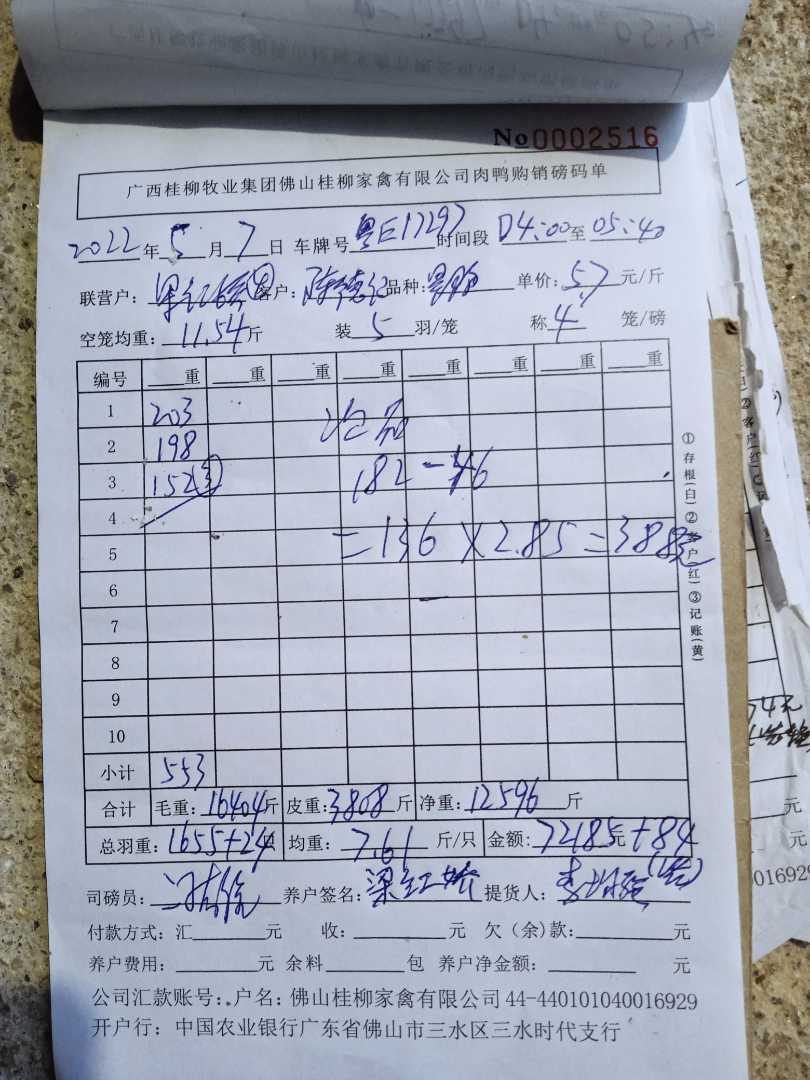 No0002516
广西桂柳牧业集团佛山桂柳家禽有限公司肉鸭购销磅码单
2022年5月7日 车牌号粤E17297时间段04:00至05:40
联营户: 客户: 陈德记 品种: 单价: 5.7元/斤
空笼均重: 11.54斤 装5羽/笼 称4笼/磅
编号 重 重 重 重 重 重 重 重
1 203
2 198
3 152 182-46
4
5 =136×2.85=388元
6
7
8
9
10
小计 553
合计 毛重: 16404斤 皮重: 3808斤 净重: 12596斤
总羽重: 1655+24 均重: 7.61斤/只 金额: 72185元+84
司磅员: 养户签名: 梁红娇 提货人:
付款方式: 汇 元 收: 元 欠(余)款: 元
养户费用: 元 余料 包 养户净金额: 元
公司汇款账号:.户名: 佛山桂柳家禽有限公司44-440101040016929
开户行: 中国农业银行广东省佛山市三水区三水时代支行
①存根(白)②客户(红)③记账(黄)
元
元
016929